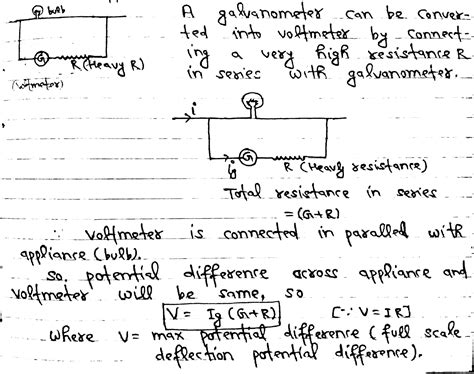 bulb
G
R (Heavy R)
(voltmeter)
A galvanometer can be conver-
ted into voltmeter by connect-
ing a very high resistance R
in series with galvanometer.
i
ig
G
R (Heavy resistance)
Total resistance in series
= (G+R)
∴ voltmeter is connected in paralled with
appliance (bulb).
so, potential difference across appliance and
voltmeter will be same, so
V = Ig (G+R) [∵ V = IR]
where V = max potential difference (full scale
deflection potential difference).